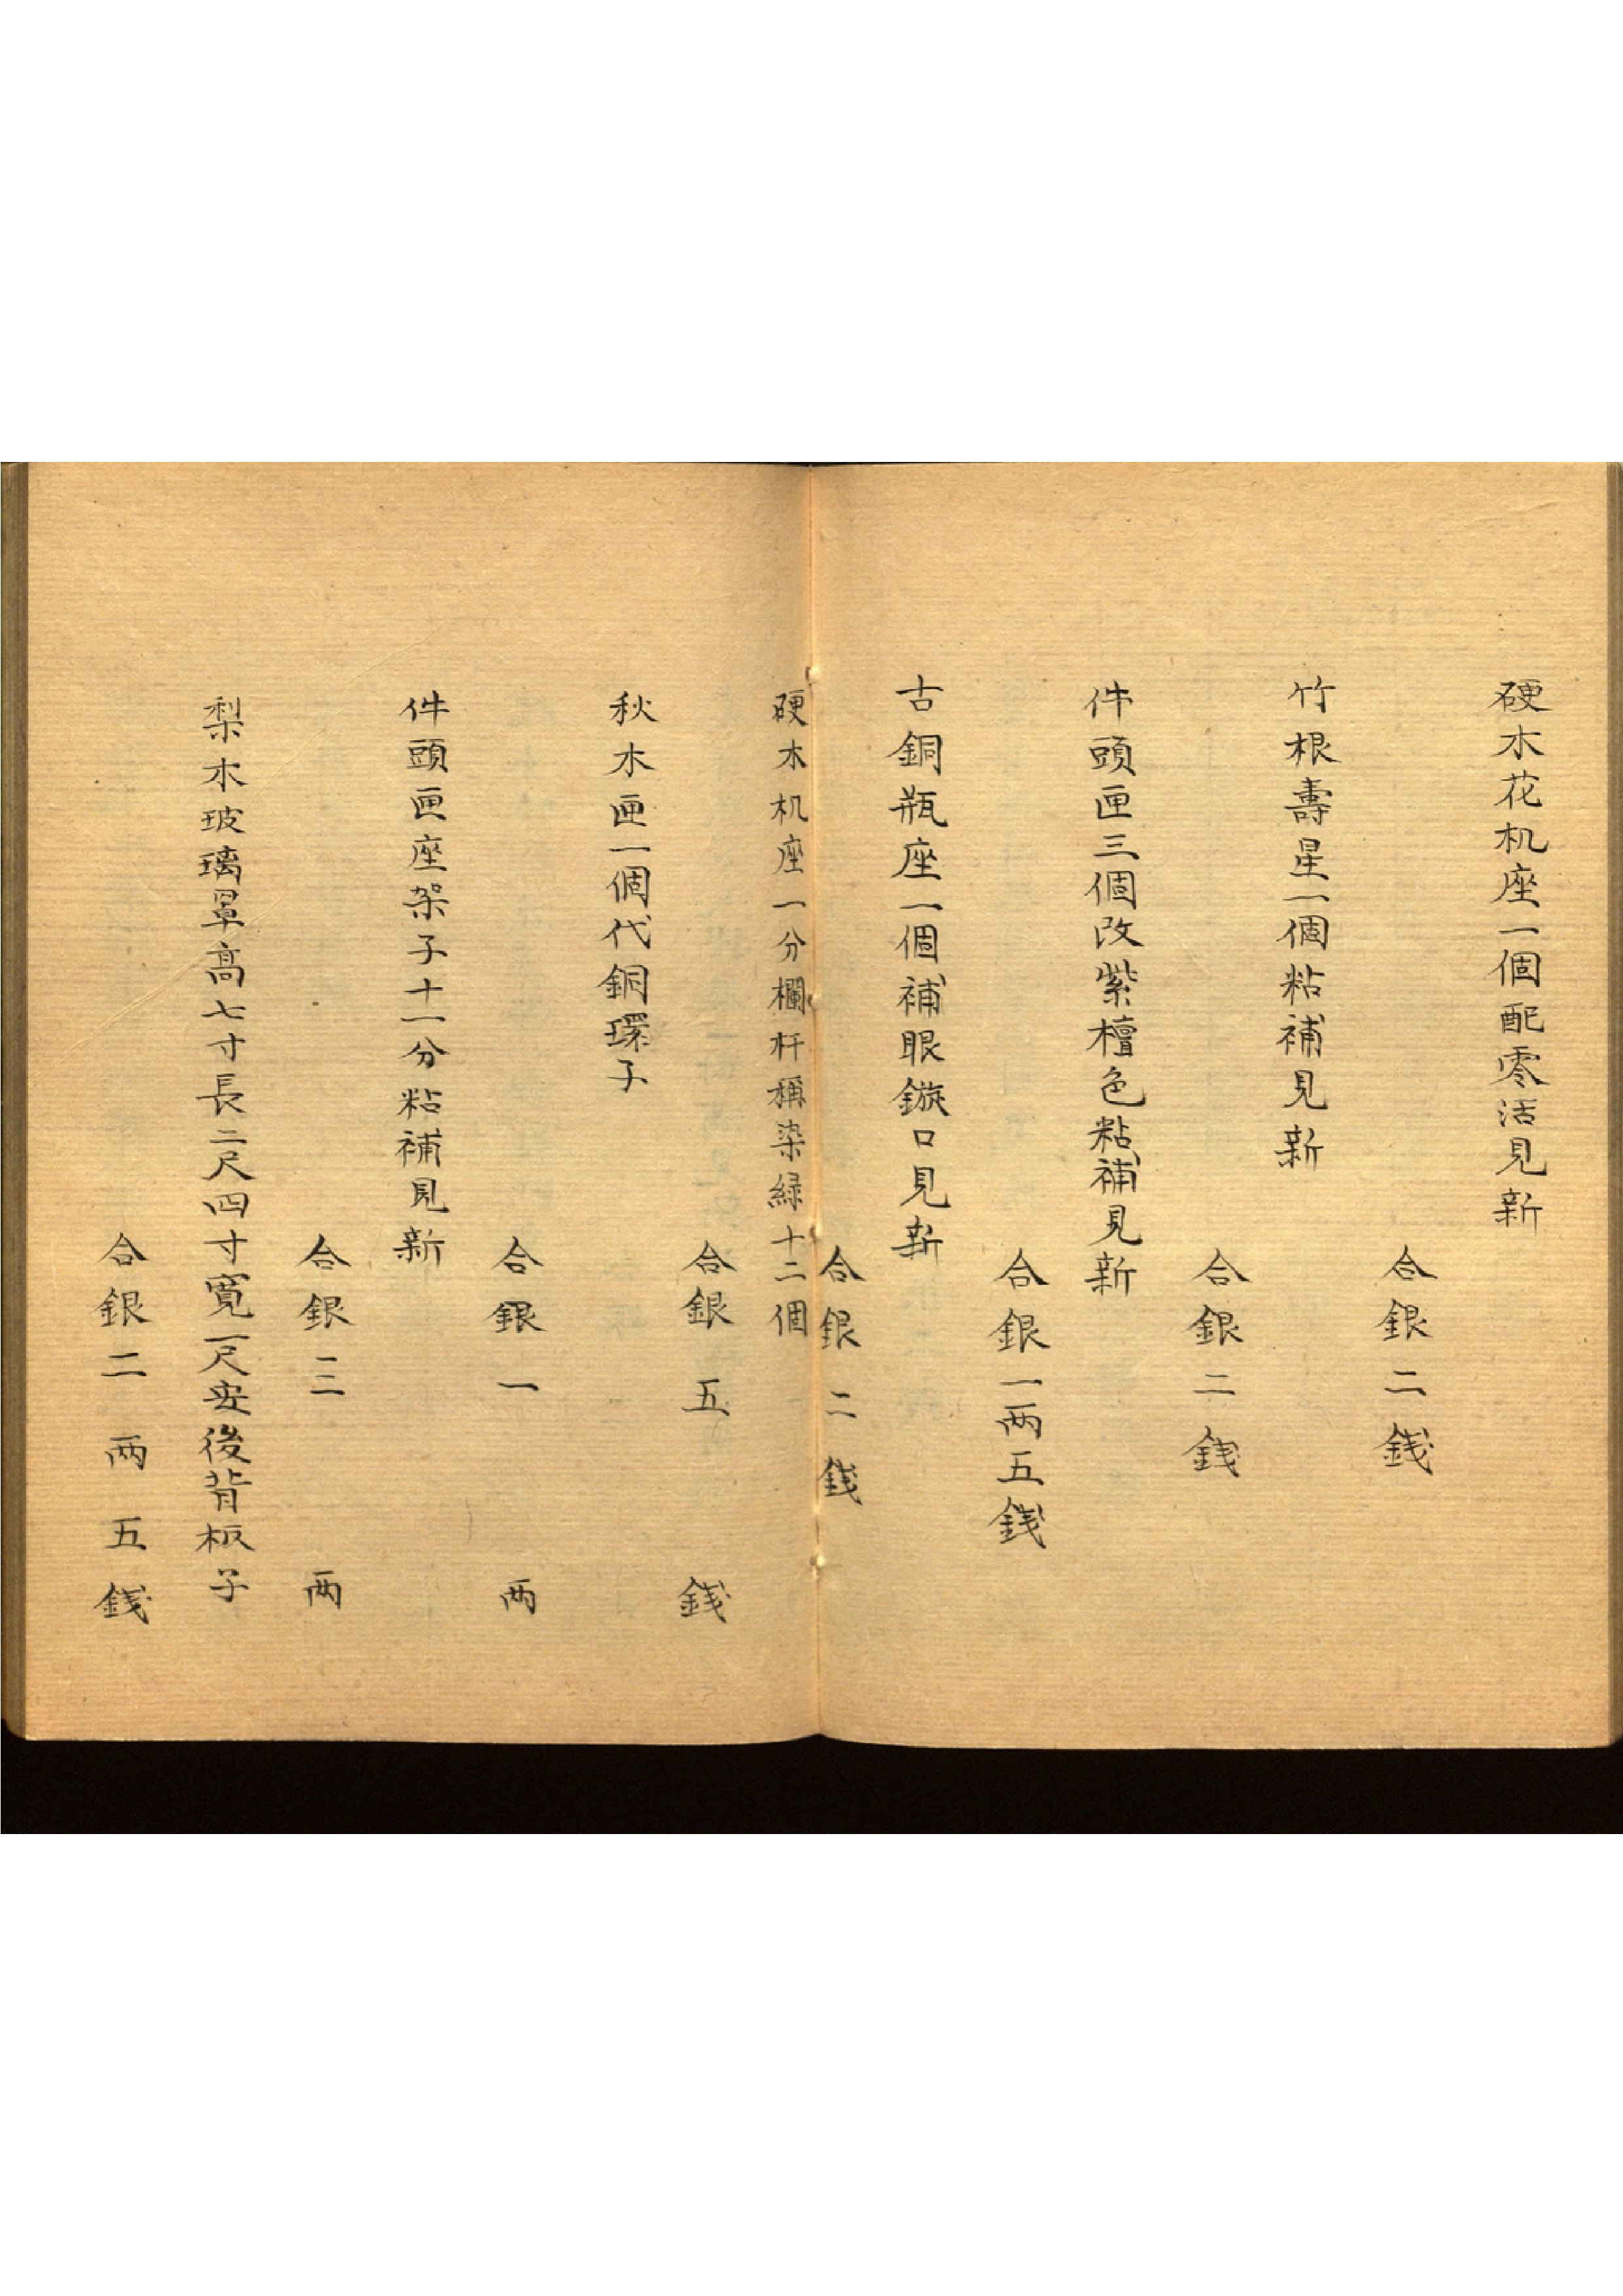 硬木花机座一個配零活見新
合銀二錢
竹根壽星一個粘補見新
合銀二錢
件頭匣三個改紫檀色粘補見新
合銀一両五錢
古銅瓶座一個補眼鏇口見新
合銀二錢
硬木机座一分欄杆稱染緑十二個
合銀五錢
秋木匣一個代銅環子
合銀一両
件頭匣座架子十一分粘補見新
合銀三両
梨木玻璃罩高七寸長二尺四寸寬一尺安後背板子
合銀二両五錢